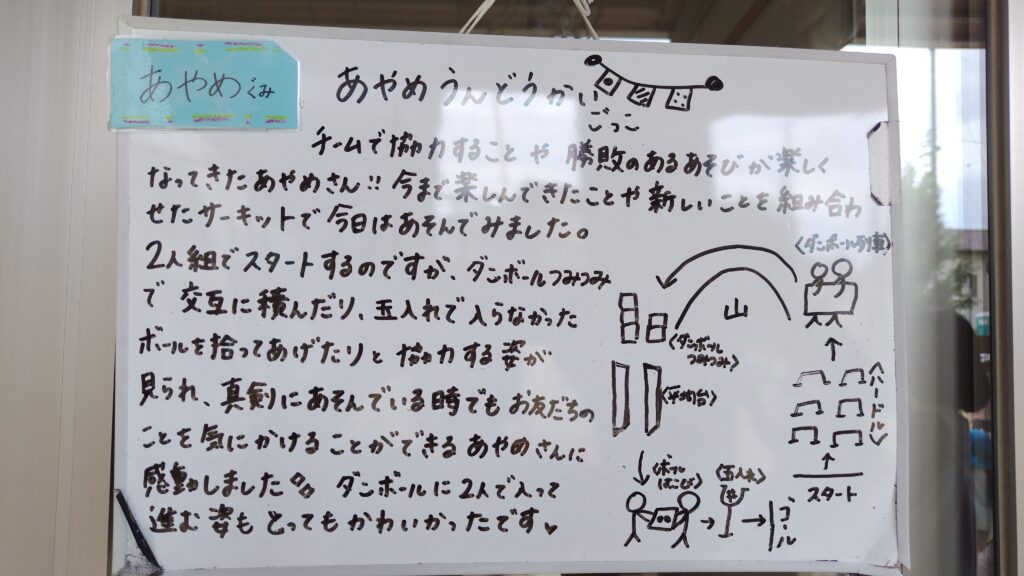 あやめぐみ
あやめうんどうかい
ごっこ
チームで協力することや勝敗のあるあそびが楽しく
なってきたあやめさん!!今まで楽しんできたことや新しいことを組み合わ
せたサーキットで今日はあそんでみました。
2人組でスタートするのですが、ダンボールつみつみ
で交互に積んだり、玉入れで入らなかった
ボールを拾ってあげたりと協力する姿が
見られ、真剣にあそんでいる時でもお友だちの
ことを気にかけることができるあやめさんに
感動しました
ダンボールに2人で入って
進む姿もとってもかわいかったです♥
<ダンボール列車>
山
<ダンボール
つみつみ>
<平均台>
<ハードル>
スタート
<ボール
はこび>
<玉入れ>
ゴール